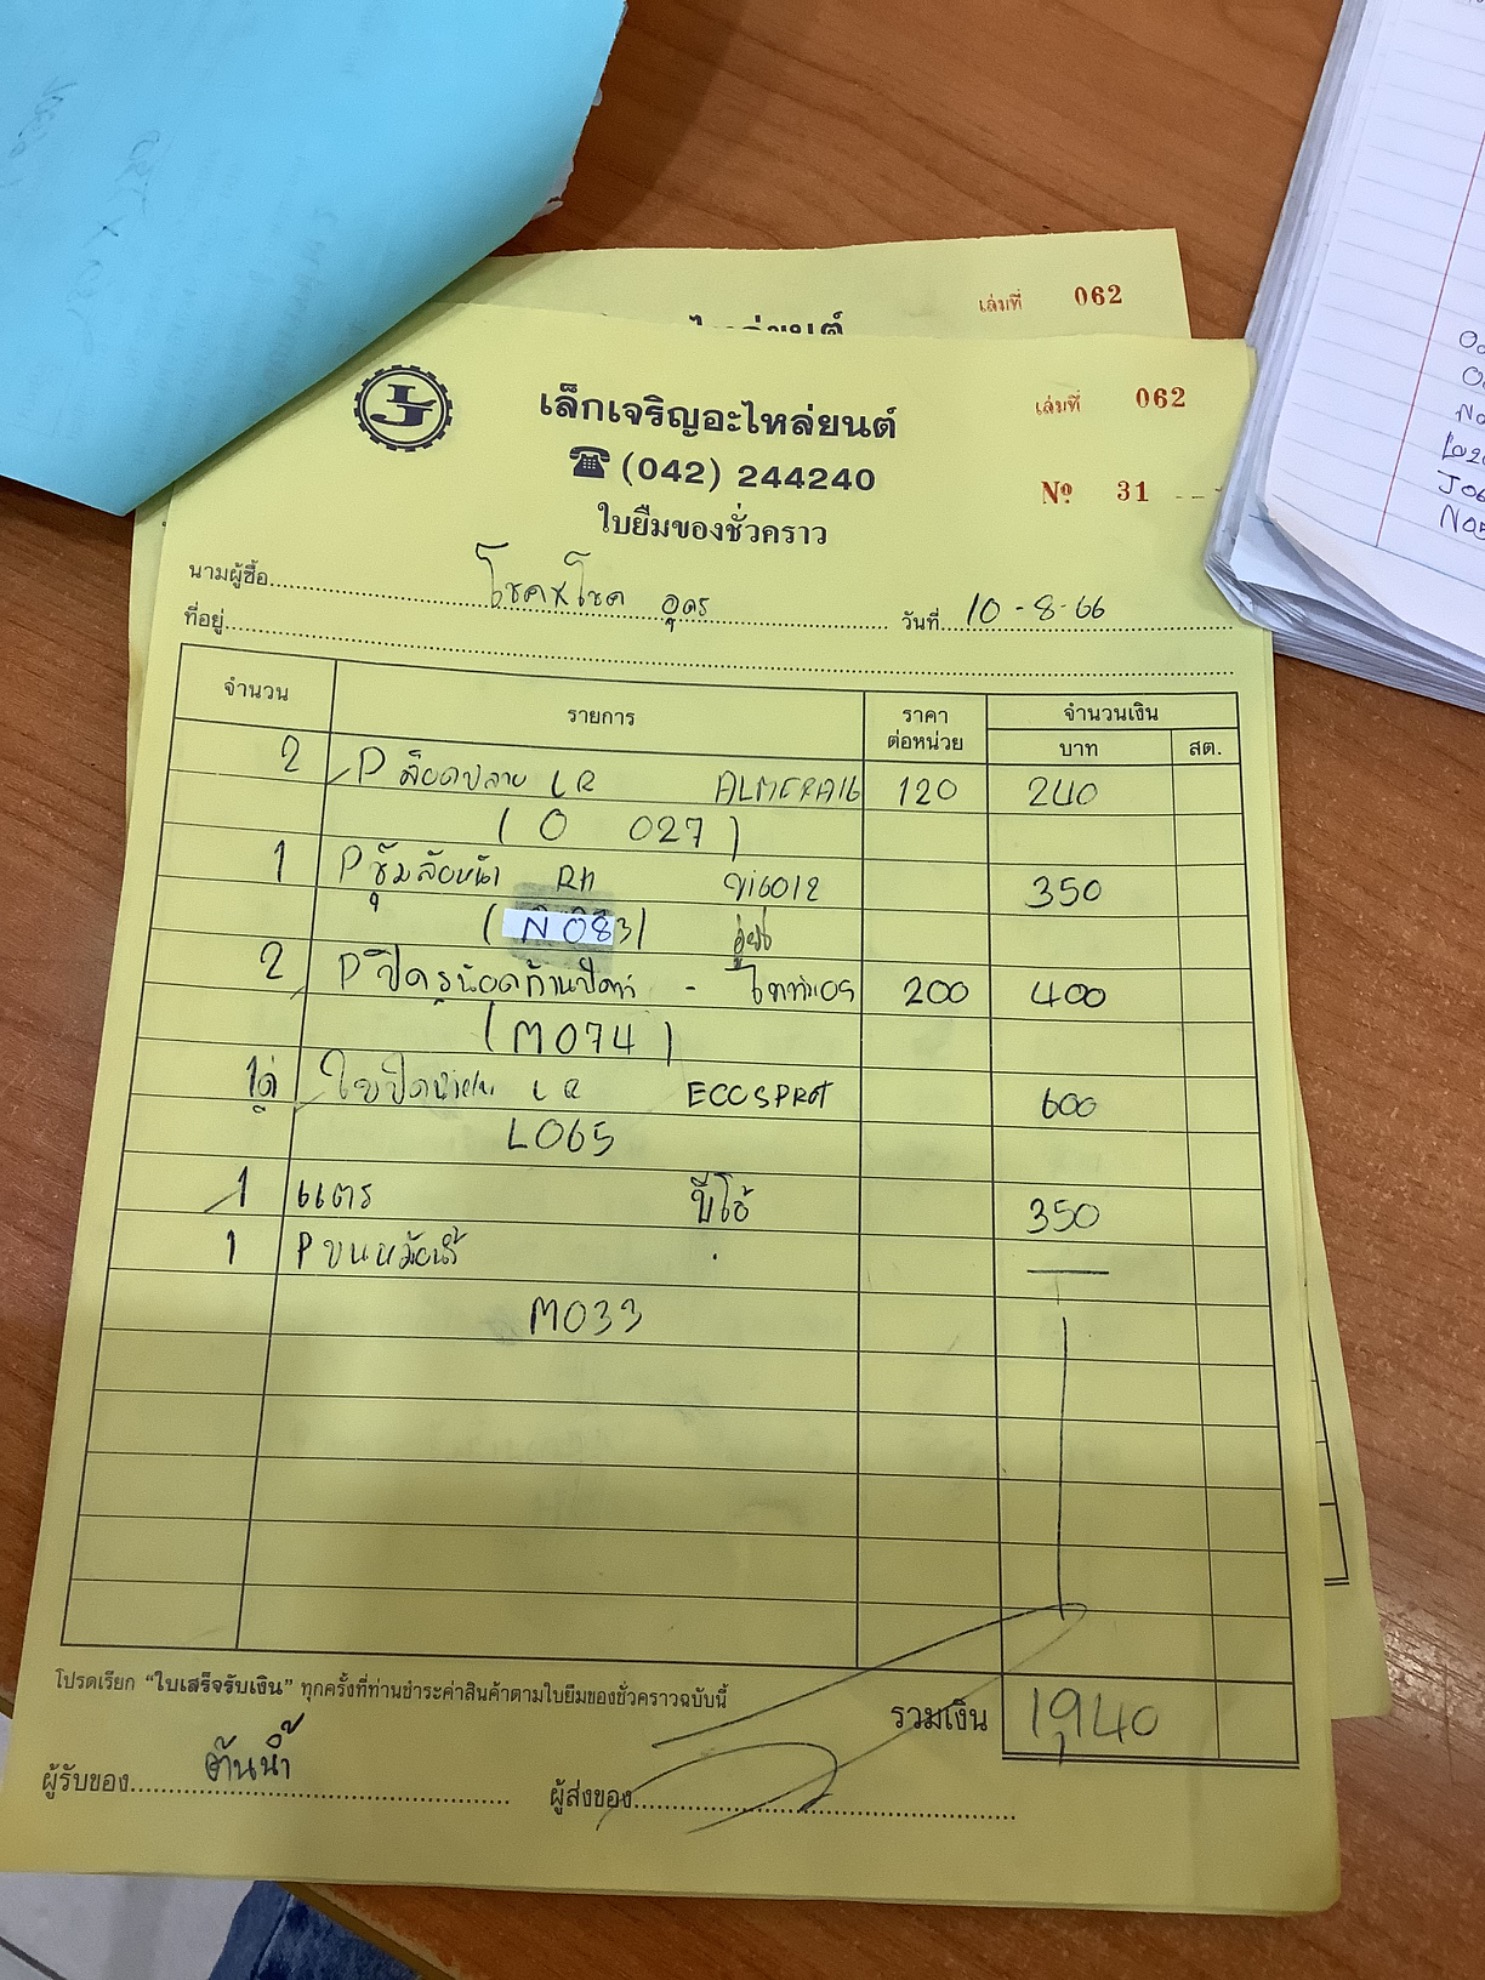 เล่มที่ 062
เล็กเจริญอะไหล่ยนต์
เล่มที่ 062
☎ (042) 244240
Nº 31
ใบยืมของชั่วคราว
นามผู้ซื้อ โชค x โชค อุดร วันที่ 10-8-66
ที่อยู่
จำนวน รายการ ราคาต่อหน่วย จำนวนเงิน
บาท สต.
2 P ล็อคปลาย LR ALMERA16 120 240
( O 027 )
1 P ซุ้มล้อหน้า RH วีโก้12 350
( N 083 )
2 P ปิด 200 400
( M074 )
1คู่ LR 600
L065
1 แตร วีโก้ 350
1 P บนหม้อน้ำ
M033
โปรดเรียก “ใบเสร็จรับเงิน” ทุกครั้งที่ท่านชำระค่าสินค้าตามใบยืมของชั่วคราวฉบับนี้
รวมเงิน 1,940
ผู้รับของ ต้นน้ำ ผู้ส่งของ